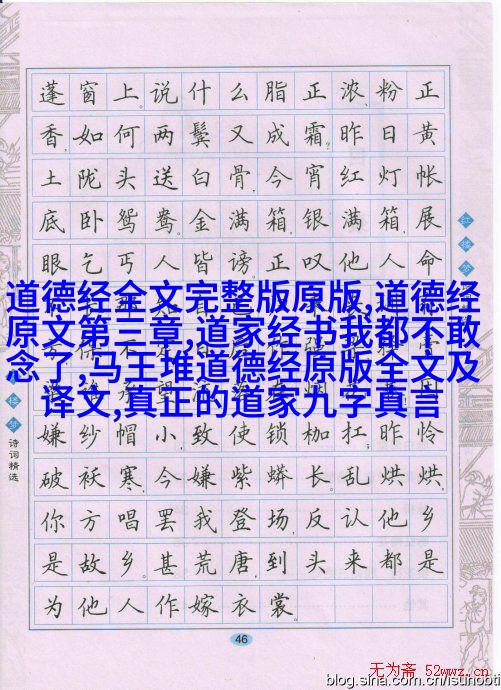 蓬窗上。说什么脂正浓、粉正
香,如何两鬓又成霜?昨日黄
土陇头送白骨,今宵红灯帐
底卧鸳鸯。金满箱,银满箱,展
眼乞丐人皆谤。正叹他人命
道德经全文完整版原版,道德经
原文第三章,道家经书我都不敢
念了,马王堆道德经原版全文及
译文,真正的道家九字真言
嫌纱帽小,致使锁枷扛;昨怜
破袄寒,今嫌紫蟒长。乱烘烘,
你方唱罢我登场,反认他乡
是故乡。甚荒唐,到头来都是
为他人作嫁衣裳。
红楼梦
楼梦诗词精选
46
无为斋 52wwz.cn
blog.sina.com.cn/isunobti